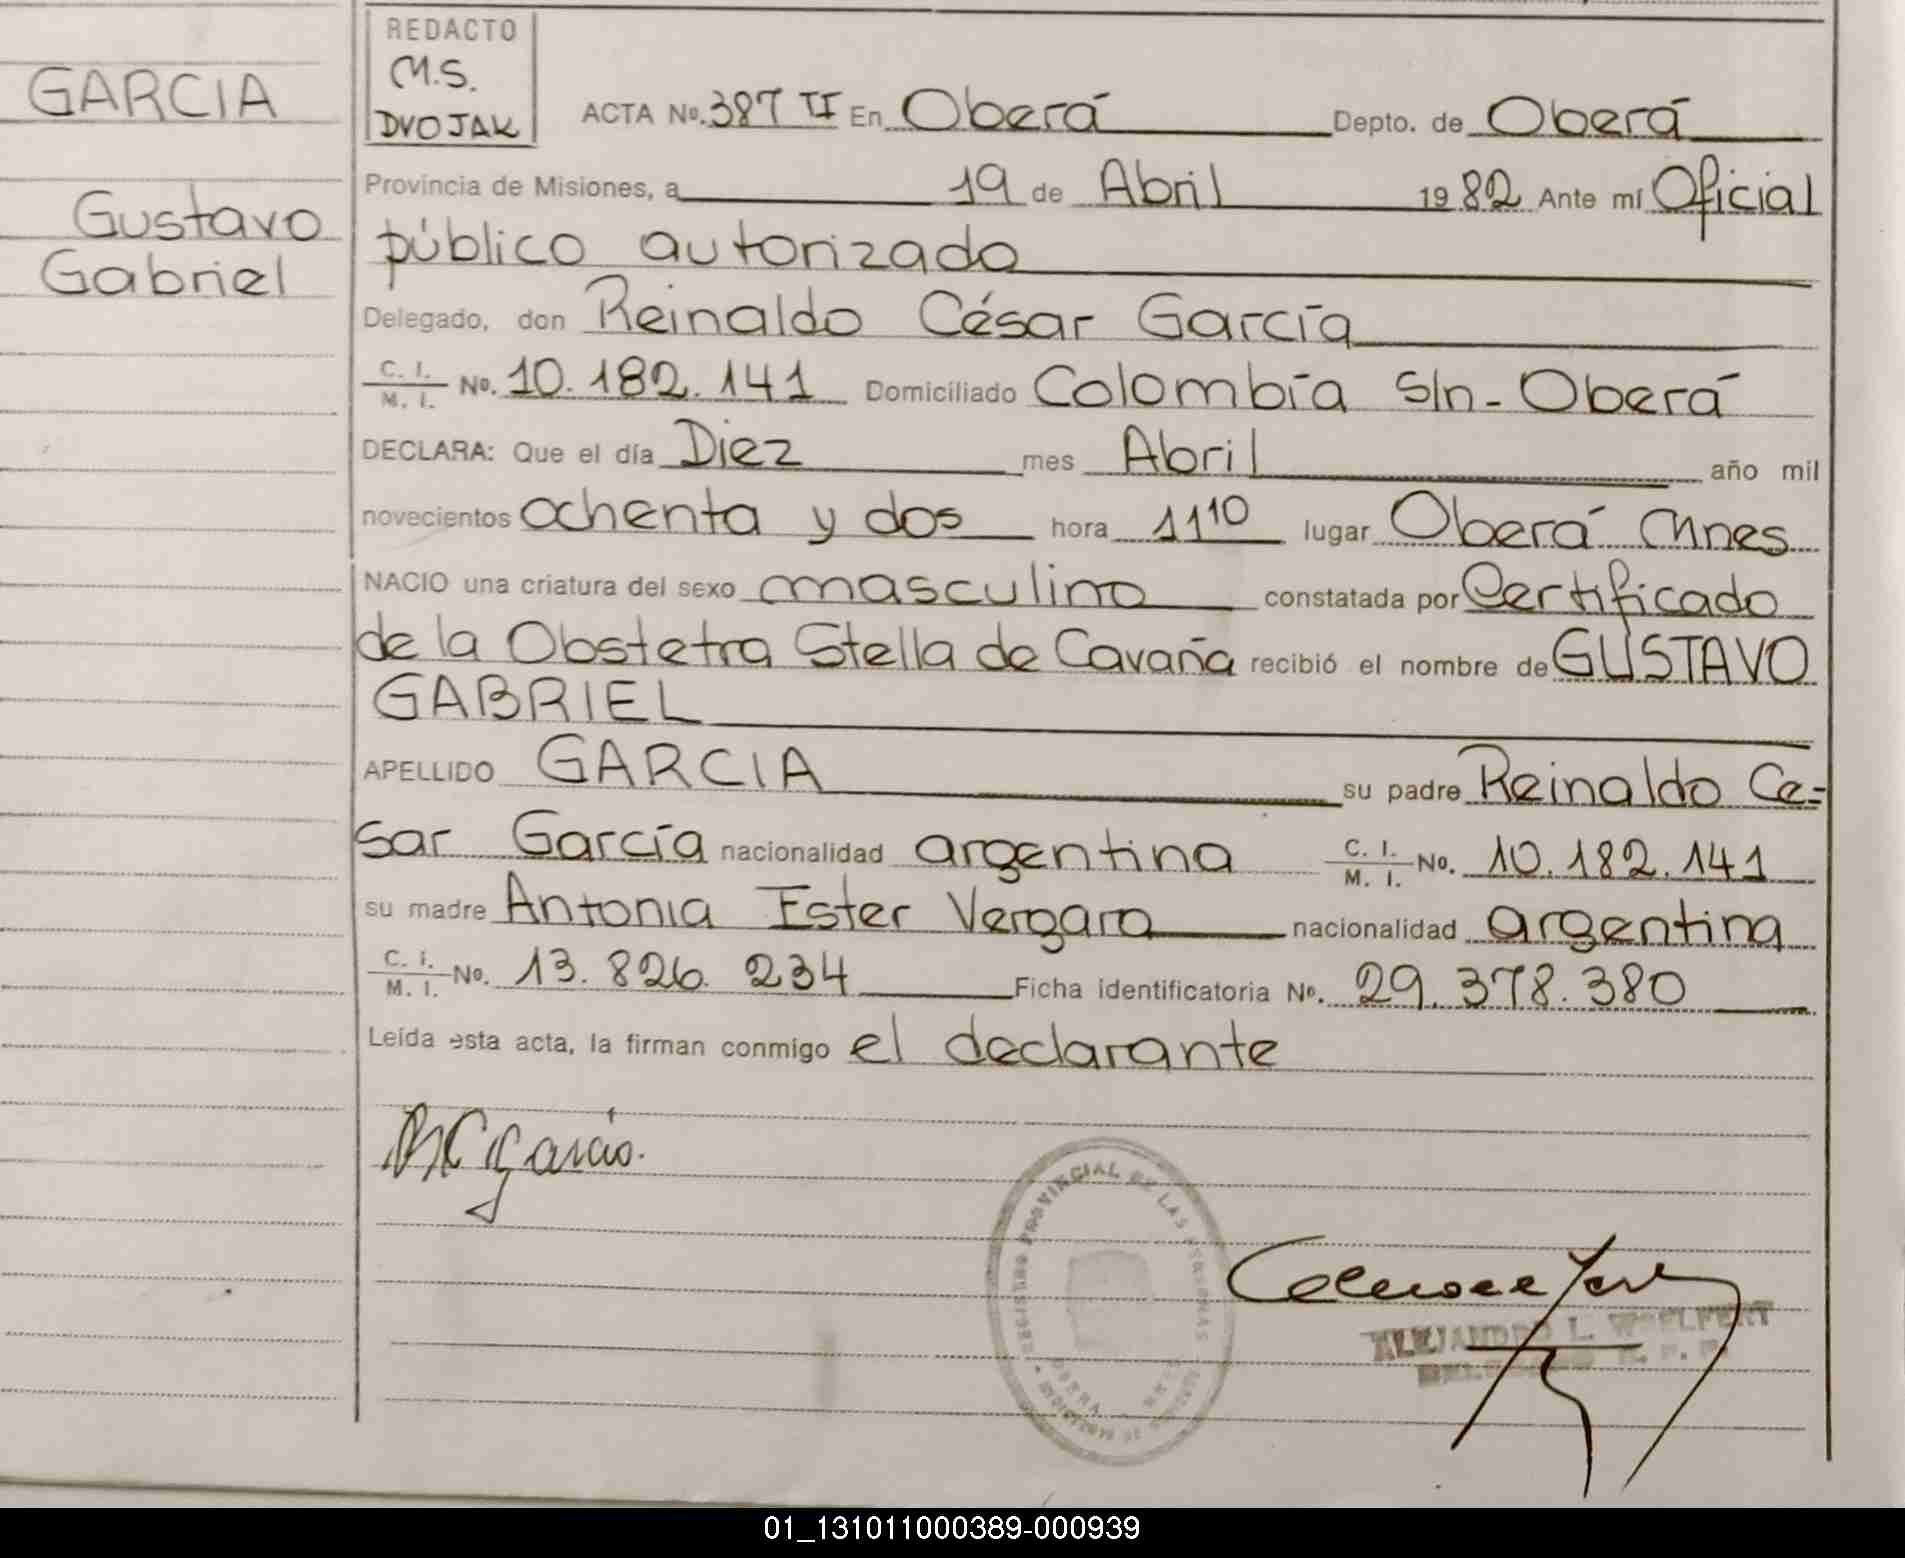 GARCIA
Gustavo
Gabriel
REDACTO
M.S.
DVOJAK
ACTA No. 387 TI En Oberá Depto. de Oberá
Provincia de Misiones, a 19 de Abril 1982 Ante mí Oficial
público autorizado
Delegado, don Reinaldo César García
C. I. / M. I. No. 10.182.141 Domiciliado Colombia S/n - Oberá
DECLARA: Que el día Diez mes Abril año mil
novecientos ochenta y dos hora 11 10 lugar Oberá Mnes
NACIO una criatura del sexo masculino constatada por Certificado
de la Obstetra Stella de Cavaña recibió el nombre de GUSTAVO
GABRIEL
APELLIDO GARCIA su padre Reinaldo Cé=
sar García nacionalidad argentina C. I. / M. I. No. 10.182.141
su madre Antonia Ester Vergara nacionalidad argentina
C. I. / M. I. No. 13.826.234 Ficha identificatoria No. 29.378.380
Leída esta acta, la firman conmigo el declarante
RC García.
PROVINCIAL DE LAS PERSONAS
OBERA
MISIONES
ALEJANDRO L. WOELFERT
01_131011000389-000939